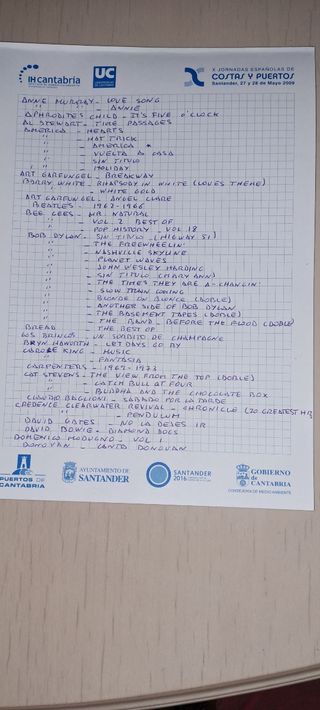 IHcantabria
UC
X JORNADAS ESPAÑOLAS DE
COSTAS Y PUERTOS
Santander, 27 y 28 de Mayo 2009
ANNE MURRAY - LOVE SONG
" - ANNIE
APHRODITES CHILD - IT'S FIVE O'CLOCK
AL STEWART - TIME PASSAGES
AMERICA - HEARTS
" - HAT TRICK
" - AMERICA *
" - VUELTA A CASA
" - SIN TITULO
" - HOLIDAY
ART GARFUNGEL - BREAKWAY
BARRY WHITE - RHAPSODY IN WHITE (LOVES THEME)
" - WHITE GOLD
ART GARFUNGEL - ANGEL CLARE
BEATLES - 1962-1966
BEE GEES - MR. NATURAL
" - VOL. 2 BEST OF
" - POP HISTORY - VOL 18
BOB DYLAN - SIN TITULO - (HIGWAY 51)
" - THE FREEWHEELIN'
" - NASHVILLE SKYLINE
" - PLANET WAVES
" - JOHN WESLEY HARDING
" - SIN TITULO (MARY ANN)
" - THE TIMES THEY ARE A-CHANGIN'
" - SLOW TRAIN COMING
" - BLONDE ON BLONDE (DOBLE)
" - ANOTHER SIDE OF BOB DYLAN
" - THE BASEMENT TAPES (DOBLE)
" - THE BAND - BEFORE THE FLOOD (DOBLE)
BREAD - THE BEST OF
LOS BRINCOS - UN SORBITO DE CHAMPAGNE
BRYN HAWORTH - LET DAYS GO BY
CAROLE KING - MUSIC
" - FANTASIA
CARPENTERS - 1969-1973
CAT STEVENS - THE VIEW FROM THE TOP (DOBLE)
" - CATCH BULL AT FOUR
" - BUDDHA AND THE CHOCOLATE BOX
CLAUDIO BAGLIONI - SABADO POR LA TARDE
CREDENCE CLEARWATER REVIVAL - CHRONICLE (20 GREATEST HITS
" - PENDULUM
DAVID GATES - NO LA DEJES IR
DAVID BOWIE - DIAMOND DOGS
DOMENICO MODUGNO - VOL 1
DONOVAN - CANTO DONOVAN
PUERTOS DE
CANTABRIA
AYUNTAMIENTO DE
SANTANDER
SANTANDER
2016
GOBIERNO
de
CANTABRIA
CONSEJERÍA DE MEDIO AMBIENTE